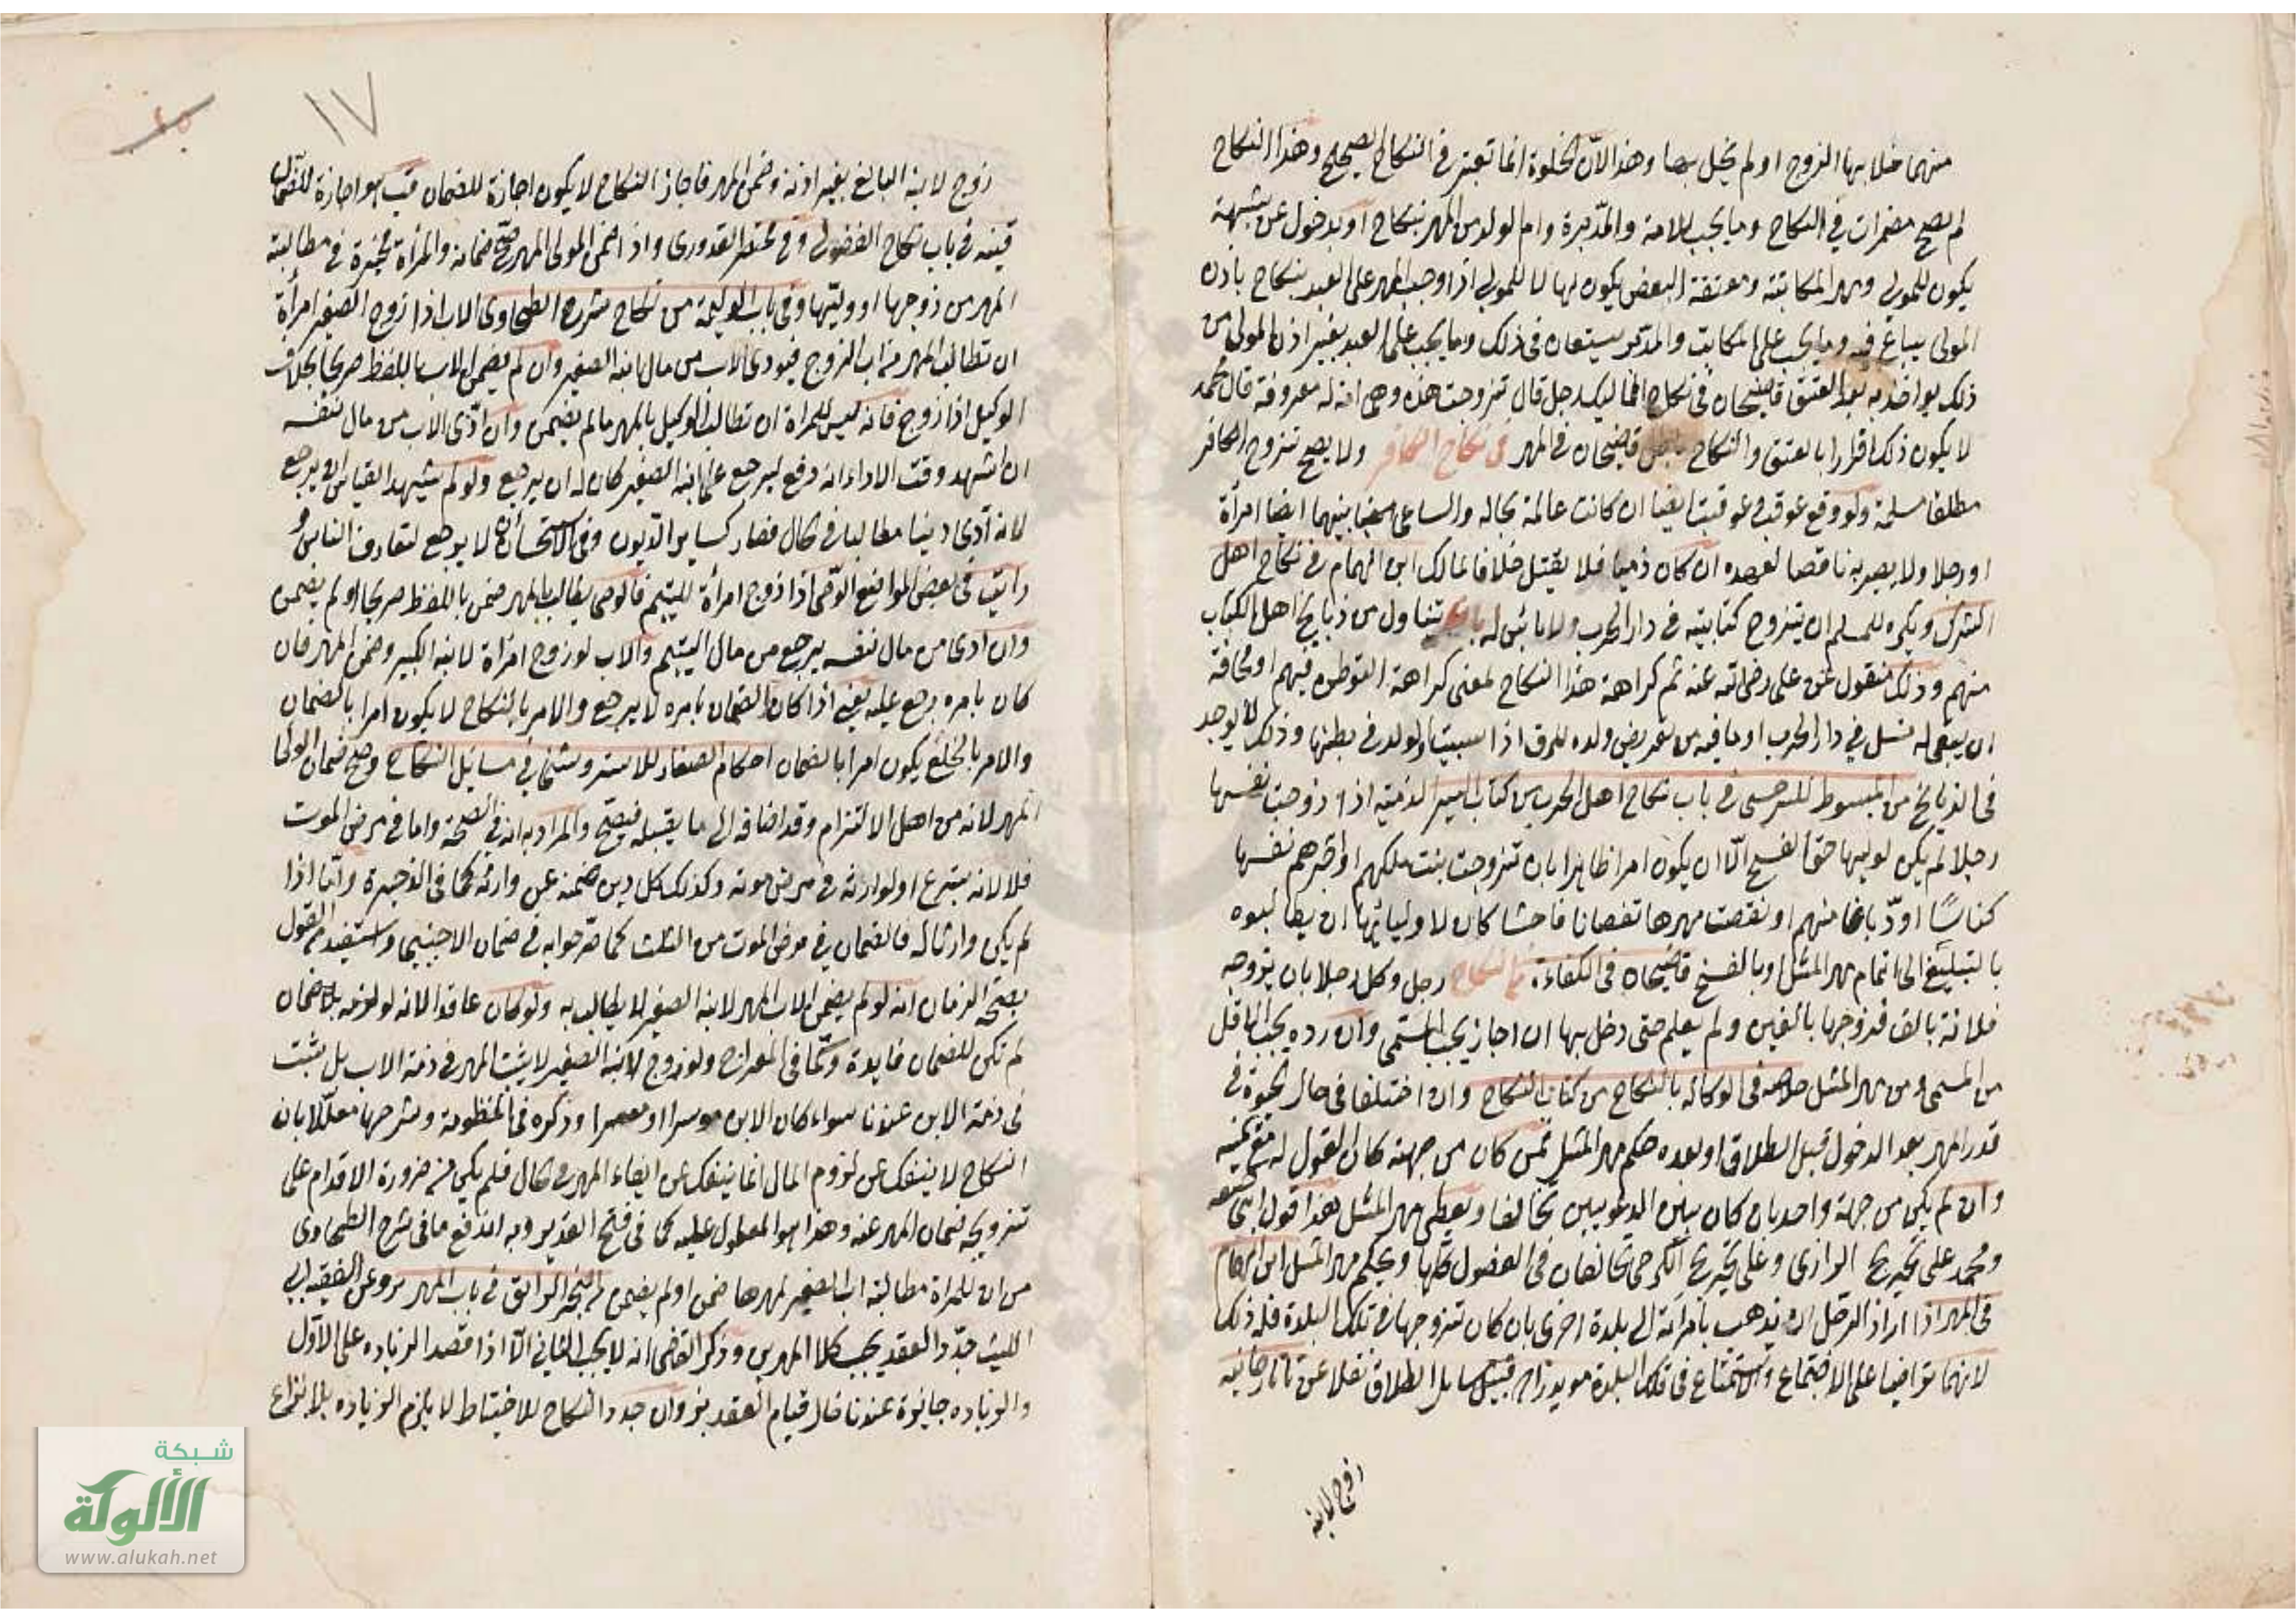 منهما خلا بها الزوج او لم يخل بها وهذا لان الخلوة انما تعتبر في النكاح الصحيح وهذا النكاح
لم يصح مضمرات في النكاح وما يجب للامة والمدبرة وام الولد من المهر بنكاح او بدخول عن شبهة
يكون للمولى ومهر المكاتبة ومعتقة البعض يكون لها لا للمولى اذا وجب المهر على العبد بنكاح باذن
المولى يباع فيه وما يجب على المكاتب والمدبر يسعيان في ذلك وما يجب على العبد بغير اذن المولى من
ذلك يواخذ به بعد العتق قاضيخان في نكاح المماليك رجل قال تزوجت هذه وهي امة له معروفة قال محمد
لا يكون ذلك اقرارا بالعتق والنكاح باطل قاضيخان في المهر في نكاح الكافر ولا يصح تزوج الكافر
مطلقا مسلمة ولو وقع عوقب وعوقبت ايضا ان كانت عالمة بحاله والساعي بينهما ايضا امرأة
او رجلا ولا يصير به ناقضا لعهده ان كان ذميا فلا يقتل خلافا لمالك ابن الهمام في نكاح اهل
الشرك ويكره للمسلم ان يتزوج كتابية في دار الحرب ولا باس له تناول من ذبايح اهل الكتاب
منهم وذلك منقول عن علي رضي الله عنه ثم كراهة هذا النكاح لمعنى كراهة التوطن فيهم او مخافة
ان يبقى له نسل في دار الحرب او ما فيه من تعريض ولده للرق اذا سبيت والولد في بطنها وذلك لا يوجد
في الذبايح من المبسوط للسرخسي في باب نكاح اهل الحرب من كتاب السير الذمية اذا زوجت نفسها
رجلا لم يكن لوليها حق الفسخ الا ان يكون امرا ظاهرا بان تزوجت بنت ملكهم او حبرهم نفسها
كناسا او دباغا منهم او نقصت مهرها نقصانا فاحشا كان لاوليائها ان يطالبوه
بالتبليغ الى اتمام مهر المثل او بالفسخ قاضيخان في الكفاءة رجل وكل رجلا بان يزوجه
فلانة بالف فزوجها بالفين ولم يعلم حتى دخل بها ان اجاز يجب المسمى وان رده يجب الاقل
من المسمى ومن مهر المثل خلاصه في الوكالة بالنكاح من كتاب النكاح وان اختلفا في حال الحيوة في
قدر المهر بعد الدخول قبل الطلاق او بعده حكم مهر المثل فمن كان من جهته كان القول له مع يمينه
وان لم يكن من جهة واحد بان كان بين الدعويين تحالفا ويعطى مهر المثل هذا قول ابي حنيفه
ومحمد على تخريج الرازي وعلى تخريج الكرخي يتحالفان في الفصول كلها ويحكم مهر المثل ابن الهمام
في المهر اذا اراد الرجل ان يذهب بامراته الى بلدة اخرى بان كان تزوجها في تلك البلدة فله ذلك
لانهما تراضيا على الاجتماع والاستمتاع في تلك البلدة مويدزاده قبيل مسايل الطلاق نقلا عن تاتارخانيه
زوج لابنه
١٧
٤٥
زوج لابنه البالغ بغير اذنه وضمن المهر فاجاز النكاح لا يكون اجازة للضمان قب هو اجازة للضمان
قنيه في باب نكاح الفضولي وفي مختصر القدوري واذا ضمن الولي المهر صح ضمانه والمرأة مخيرة في مطالبة
المهر من زوجها او وليها وفي باب الوليمة من نكاح شرح الطحاوي الاب اذا زوج الصغير امرأة
ان تطالب المهر من اب الزوج فيودي الاب من مال ابنه الصغير وان لم يضمن الاب باللفظ صريحا بخلاف
الوكيل اذا زوج فانه ليس للمراة ان تطالب الوكيل بالمهر ما لم يضمن وان ادى الاب من مال نفسه
ان اشهد وقت الاداء انه دفع ليرجع على ابنه الصغير كان له ان يرجع ولو لم يشهد القياس ان يرجع
لانه ادى دينا مطالبا في الحال فصار كساير الديون وفي الاستحسان لا يرجع لتعارف الناس و
رايت في بعض المواضع الوصي اذا زوج امرأة لليتيم فالوصي يطالب بالمهر ضمن باللفظ صريحا او لم يضمن
وان ادى من مال نفسه يرجع من مال اليتيم والاب لو زوج امرأة لابنه الكبير وضمن المهر فان
كان بامره رجع عليه يعني اذا كان الضمان بامره لا يرجع والامر بالنكاح لا يكون امرا بالضمان
والامر بالخلع يكون امرا بالضمان احكام الصغار للاستروشني في مسايل النكاح وصح ضمان الولي
المهر لانه من اهل الالتزام وقد اضافه الى ما يقبله فيصح والمراد به انه في الصحة واما في مرض الموت
فلا لانه تبرع او لوارثه في مرض موته وكذلك كل دين ضمنه عن وارثه كما في الذخيرة واما اذا
لم يكن وارثا له فالضمان في مرض الموت من الثلث كما صرحوا به في ضمان الاجنبي واستفيد من القول
بصحة الضمان انه لو لم يضمن الاب المهر لابنه الصغير لا يطالب به ولو كان عاقدا لانه لو لزمه بلا ضمان
لم تكن للضمان فايدة وكما في المعراج ولو زوج لابنه الصغير لا يثبت المهر في ذمة الاب بل يثبت
في ذمة الابن عندنا سواء كان الابن موسرا او معسرا وذكره في المنظومة وشرحها معللا بان
النكاح لا ينفك عن لزوم المال انما ينفك عن ايفاء المهر في الحال فلم يكن من ضرورة الاقدام على
تزويجه ضمان المهر عنه وهذا هو المعول عليه كما في فتح القدير وبه اندفع ما في شرح الطحاوي
من ان للمراة مطالبة اب الصغير لمهرها ضمن او لم يضمن البحر الرائق في باب المهر وعن الفقيه ابي
الليث جدد العقد يجب كلا المهرين وذكر القاضي انه لا يجب الثاني الا اذا قصد الزياده على الاول
والزياده جايزة عندنا حال قيام العقد بز وان جدد النكاح للاحتياط لا يلزم الزياده بلا نزاع
شبكة
الألوكة
www.alukah.net